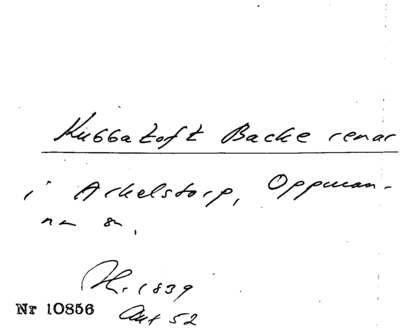 Kubbatoft Backe renar
i Arkelstorp, Oppman-
na sn.
Hr. 1839
Nr 10856 Akt 52